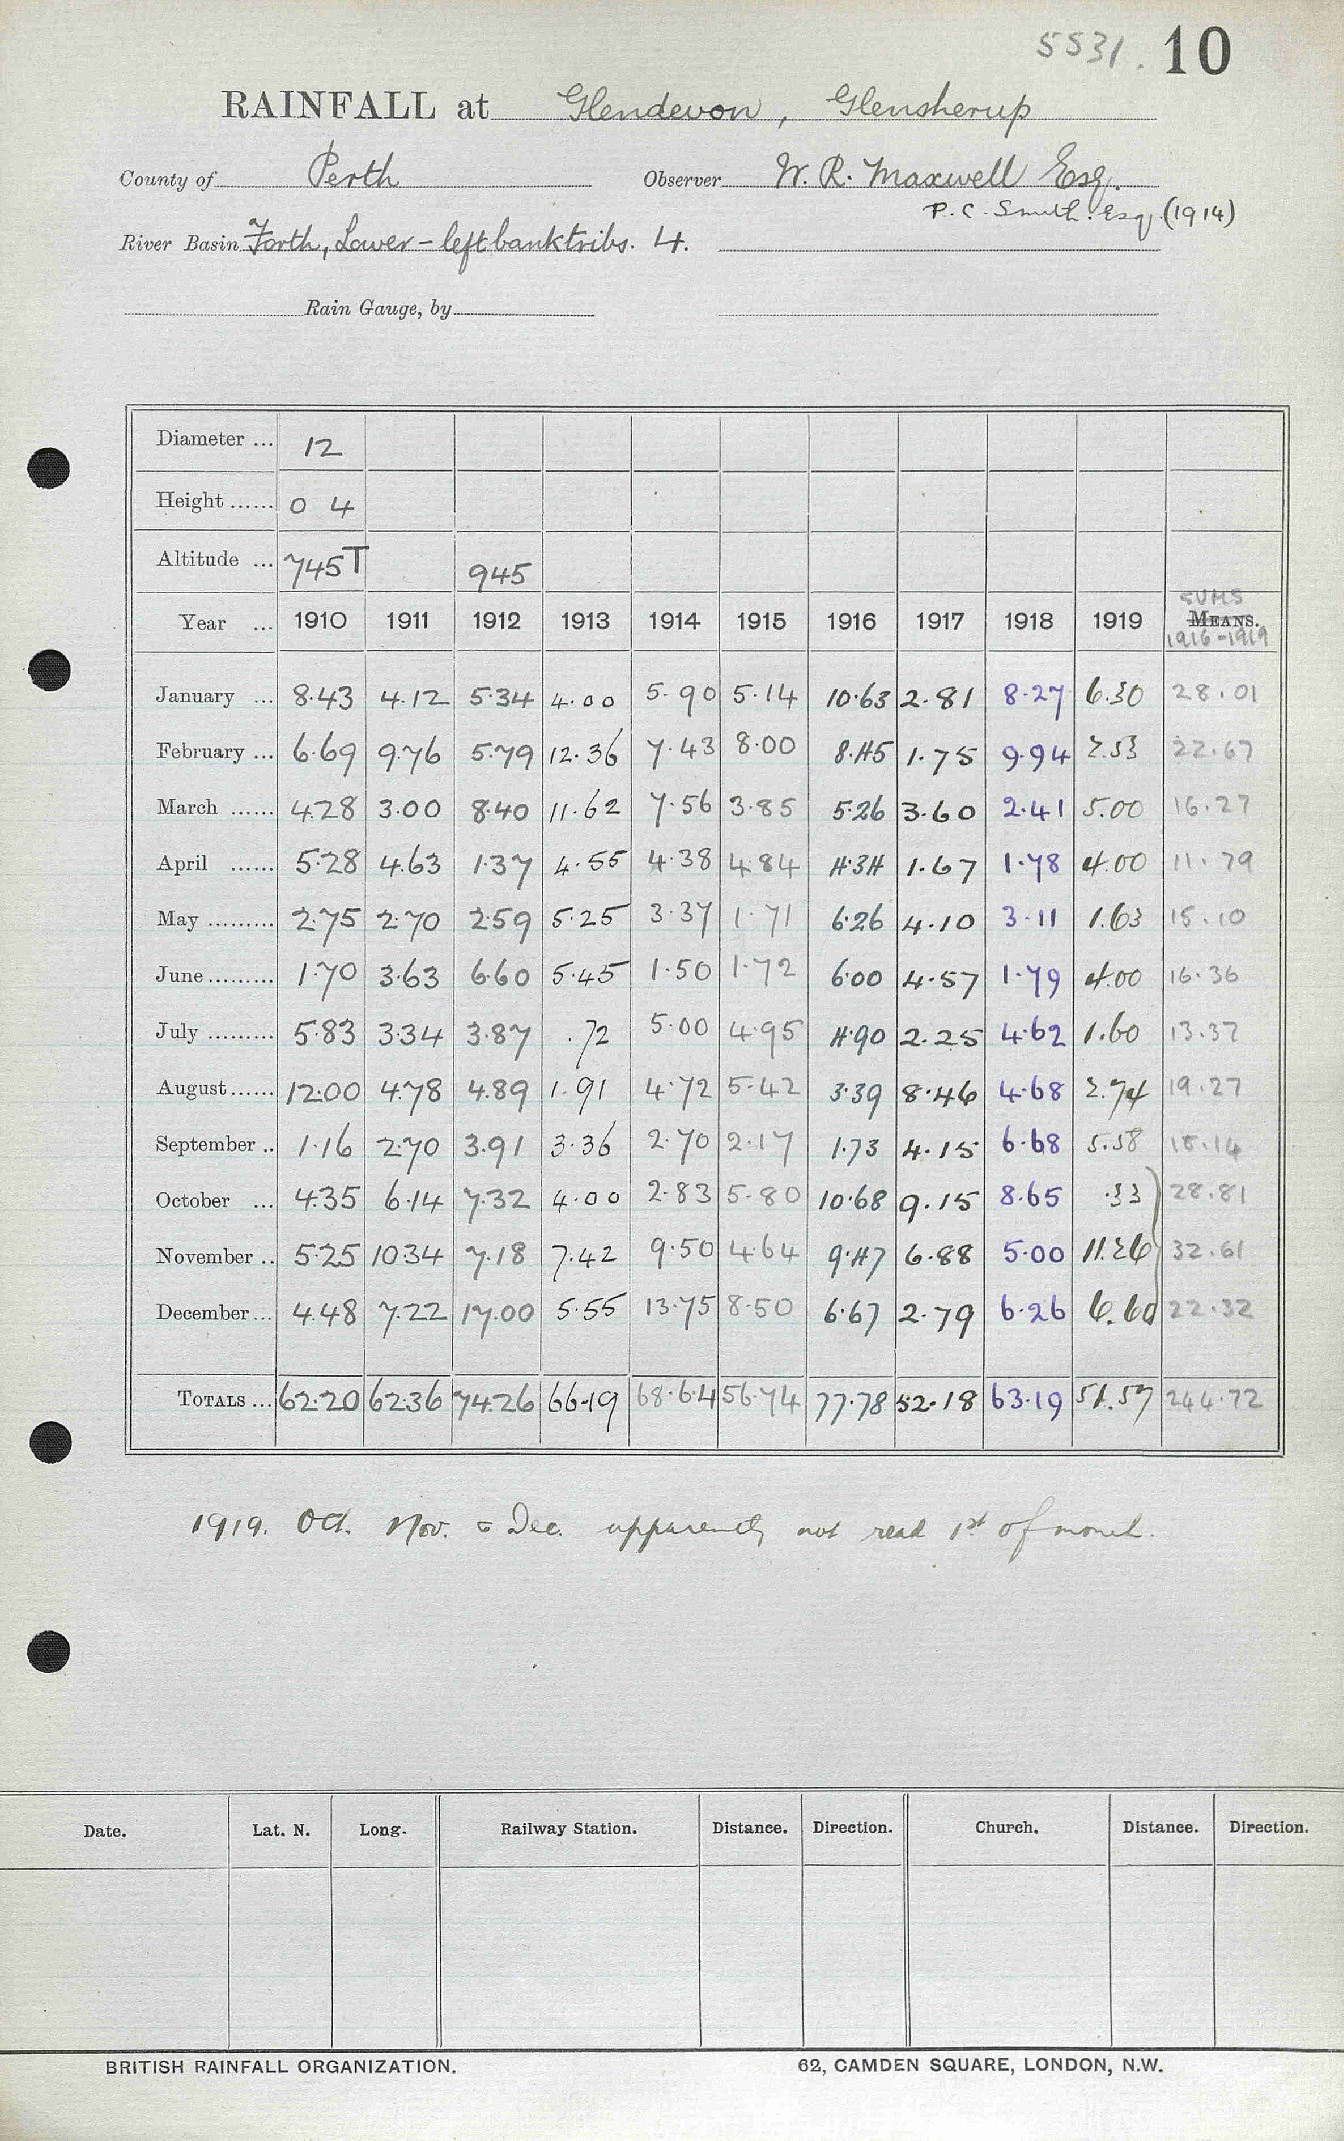 5531. 10
RAINFALL at Glendevon, Glensherup
County of Perth Observer W. R. Maxwell Esq.
P. C. Smith. Esq (1914)
River Basin Forth, Lower - left bank tribs. 4.
Rain Gauge, by
Diameter ... 12
Height ...... 0 4
Altitude ... 745T 945
SUMS
Year ... 1910 1911 1912 1913 1914 1915 1916 1917 1918 1919 MEANS.
1916-1919
January ... 8.43 4.12 5.34 4.00 5.90 5.14 10.63 2.81 8.27 6.30 28.01
February ... 6.69 9.76 5.79 12.36 7.43 8.00 8.45 1.75 9.94 2.53 22.67
March ...... 4.28 3.00 8.40 11.62 7.56 3.85 5.26 3.60 2.41 5.00 16.27
April ...... 5.28 4.63 1.37 4.55 4.38 4.84 4.34 1.67 1.78 4.00 11.79
May ......... 2.75 2.70 2.59 5.25 3.37 1.71 6.26 4.10 3.11 1.63 15.10
June ......... 1.70 3.63 6.60 5.45 1.50 1.72 6.00 4.57 1.79 4.00 16.36
July ......... 5.83 3.34 3.87 .72 5.00 4.95 4.90 2.25 4.62 1.60 13.37
August ...... 12.00 4.78 4.89 1.91 4.72 5.42 3.39 8.46 4.68 2.74 19.27
September .. 1.16 2.70 3.91 3.36 2.70 2.17 1.73 4.15 6.68 5.58 18.14
October ... 4.35 6.14 7.32 4.00 2.83 5.80 10.68 9.15 8.65 .33 28.81
November .. 5.25 10.34 7.18 7.42 9.50 4.64 9.47 6.88 5.00 11.26 32.61
December ... 4.48 7.22 17.00 5.55 13.75 8.50 6.67 2.79 6.26 6.60 22.32
TOTALS ... 62.20 62.36 74.26 66.19 68.64 56.74 77.78 52.18 63.19 51.57 244.72
1919. Oct. Nov. & Dec. apparently not read 1st of month.
Date. Lat. N. Long. Railway Station. Distance. Direction. Church. Distance. Direction.
BRITISH RAINFALL ORGANIZATION. 62, CAMDEN SQUARE, LONDON, N.W.